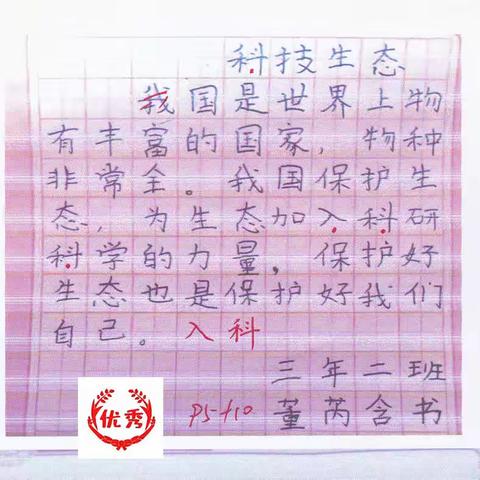 科技生态
我国是世界上物
有丰富的国家，物种
非常全。我国保护生
态，为生态加入科研
科学的力量，保护好
生态也是保护好我们
自己。入科
三年二班
优秀
P5-t10
董芮含书